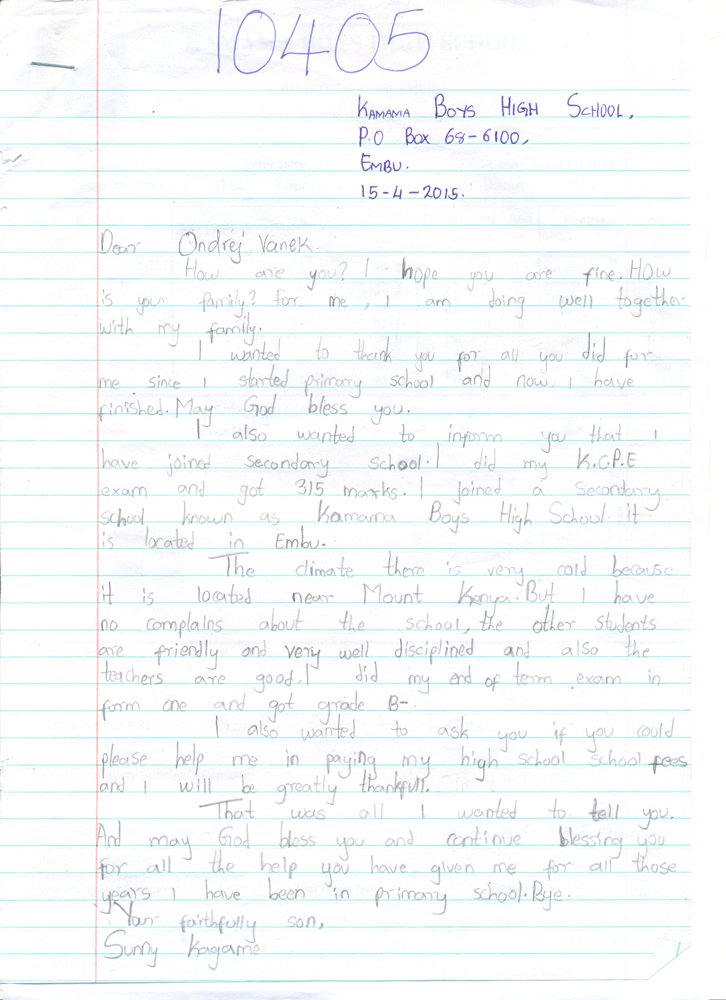 10405
KAMAMA BOYS HIGH SCHOOL,
P.O BOX 68-6100,
EMBU.
15-4-2015.
Dear Ondrej Vanek.
How are you? I hope you are fine. HOw
is your family? For me, I am doing well together
with my family.
I wanted to thank you for all you did for
me since I started primary school and now I have
finished. May God bless you.
I also wanted to inform you that I
have joined secondary school. I did my K.C.P.E
exam and got 315 marks. I joined a Secondary
school known as Kamama Boys High School it
is located in Embu.
The climate there is very cold because
it is located near Mount Kenya. But I have
no complains about the school, the other students
are friendly and very well disciplined and also the
teachers are good. I did my end of term exam in
form one and got grade B-.
I also wanted to ask you if you could
please help me in paying my high school school fees
and I will be greatly thankfull.
That was all I wanted to tell you.
And may God bless you and continue blessing you
for all the help you have given me for all those
years I have been in primary school. Bye.
Your faithfully son,
Sunny Kagame